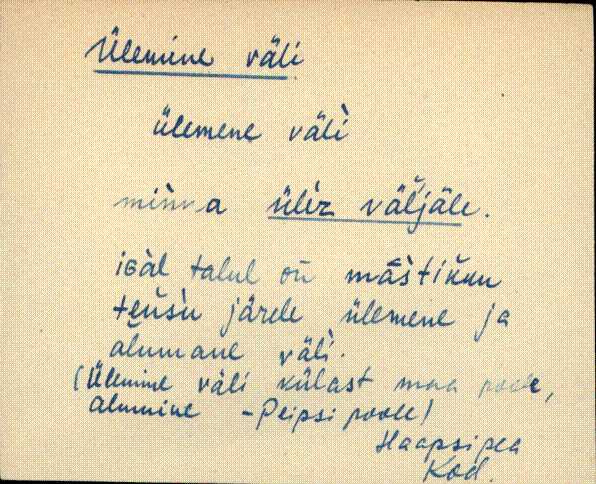 Ülemine väli
ülemene välì̬
minna üle̬z väĺjäle.
igäl talul on mästikku
tensu järele ülemene ja
alumane väli.
(Ülemine väli külast maa poole,
alumine - Peipsi poole)
Haapsipea
Kod.